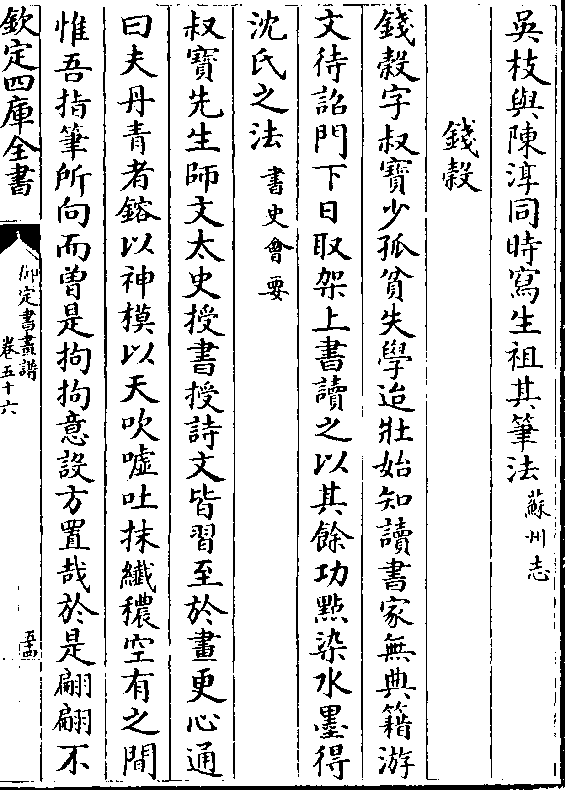 吳枝與陳淳同時寫生祖其筆法蘇州志
錢穀
錢穀字叔寶少孤貧失學迨壯始知讀書家無典籍游
文待詔門下日取架上書讀之以其餘功點染水墨得
沈氏之法書史會要
叔寶先生師文太史授書授詩文皆習至於畫更心通
曰夫丹青者鎔以神模以天吹噓吐抹纖穠空有之間
惟吾指筆所向而曾是拘拘意設方置哉於是翩翩不
欽定四庫全書
御定書畫譜
卷五十六
五十四